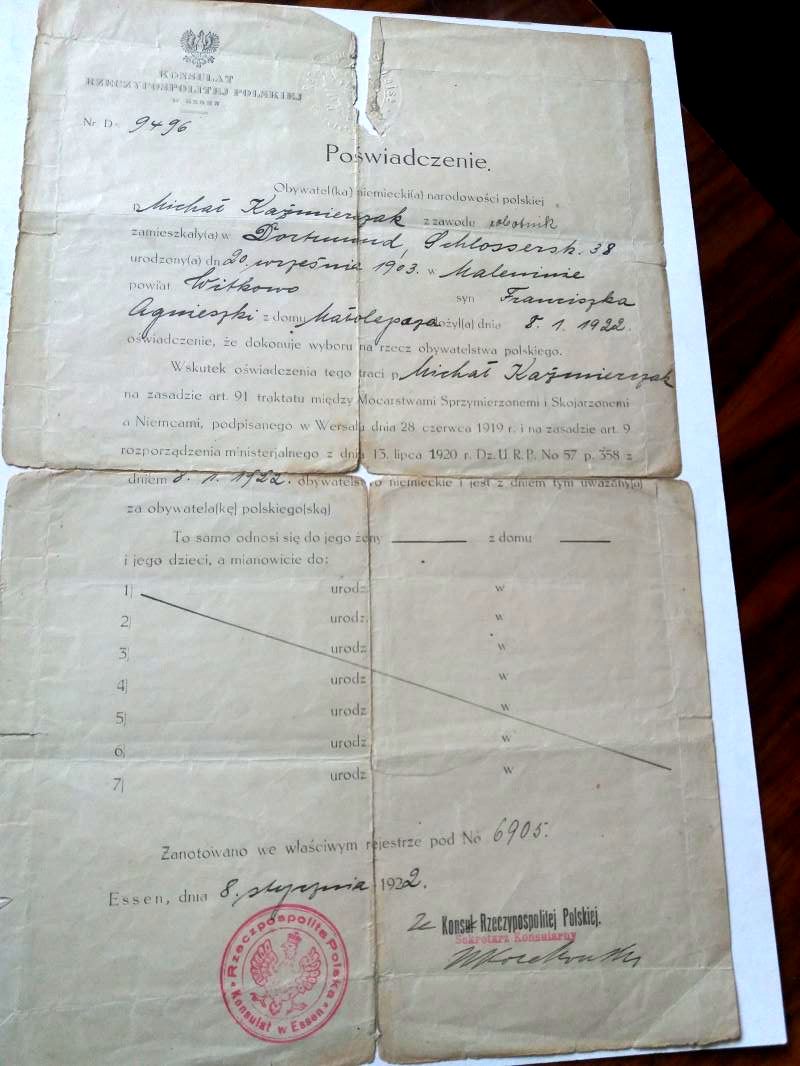 KONSULAT
RZECZYPOSPOLITEJ POLSKIEJ
W ESSEN
Nr D. 9496
Poświadczenie.
Obywatel(ka) niemiecki(a) narodowości polskiej
p. Michał Kaźmierczak z zawodu robotnik
zamieszkały(a) w Dortmund, Schlosserstr. 38
urodzony(a) dn 20. września 1903. w Maleninie
powiat Witkowo syn Franciszka
Agnieszki z domu złożył(a) dnia 8. 1. 1922.
oświadczenie, że dokonuje wyboru na rzecz obywatelstwa polskiego.
Wskutek oświadczenia tego traci p. Michał Kaźmierczak
na zasadzie art. 91 traktatu między Mocarstwami Sprzymierzonemi i Skojarzonemi
a Niemcami, podpisanego w Wersalu dnia 28 czerwca 1919 r. i na zasadzie art. 9
rozporządzenia ministerjalnego z dnia 13. lipca 1920 r. Dz. U R. P. No 57 p. 358 z
dniem 8. 1. 1922. obywatelstwo niemieckie i jest z dniem tym uważany(a)
za obywatela(kę) polskiego(ską)
To samo odnosi się do jego żony z domu
i jego dzieci, a mianowicie do:
1) urodz. w
2) urodz. w
3) urodz w
4) urodz w
5) urodz w
6) urodz w
7) urodz w
Zanotowano we właściwym rejestrze pod No 6905.
Essen, dnia 8. stycznia 1922.
Za Konsul Rzeczypospolitej Polskiej.
Sekretarz Konsularny
Rzeczpospolita Polska
Konsulat w Essen